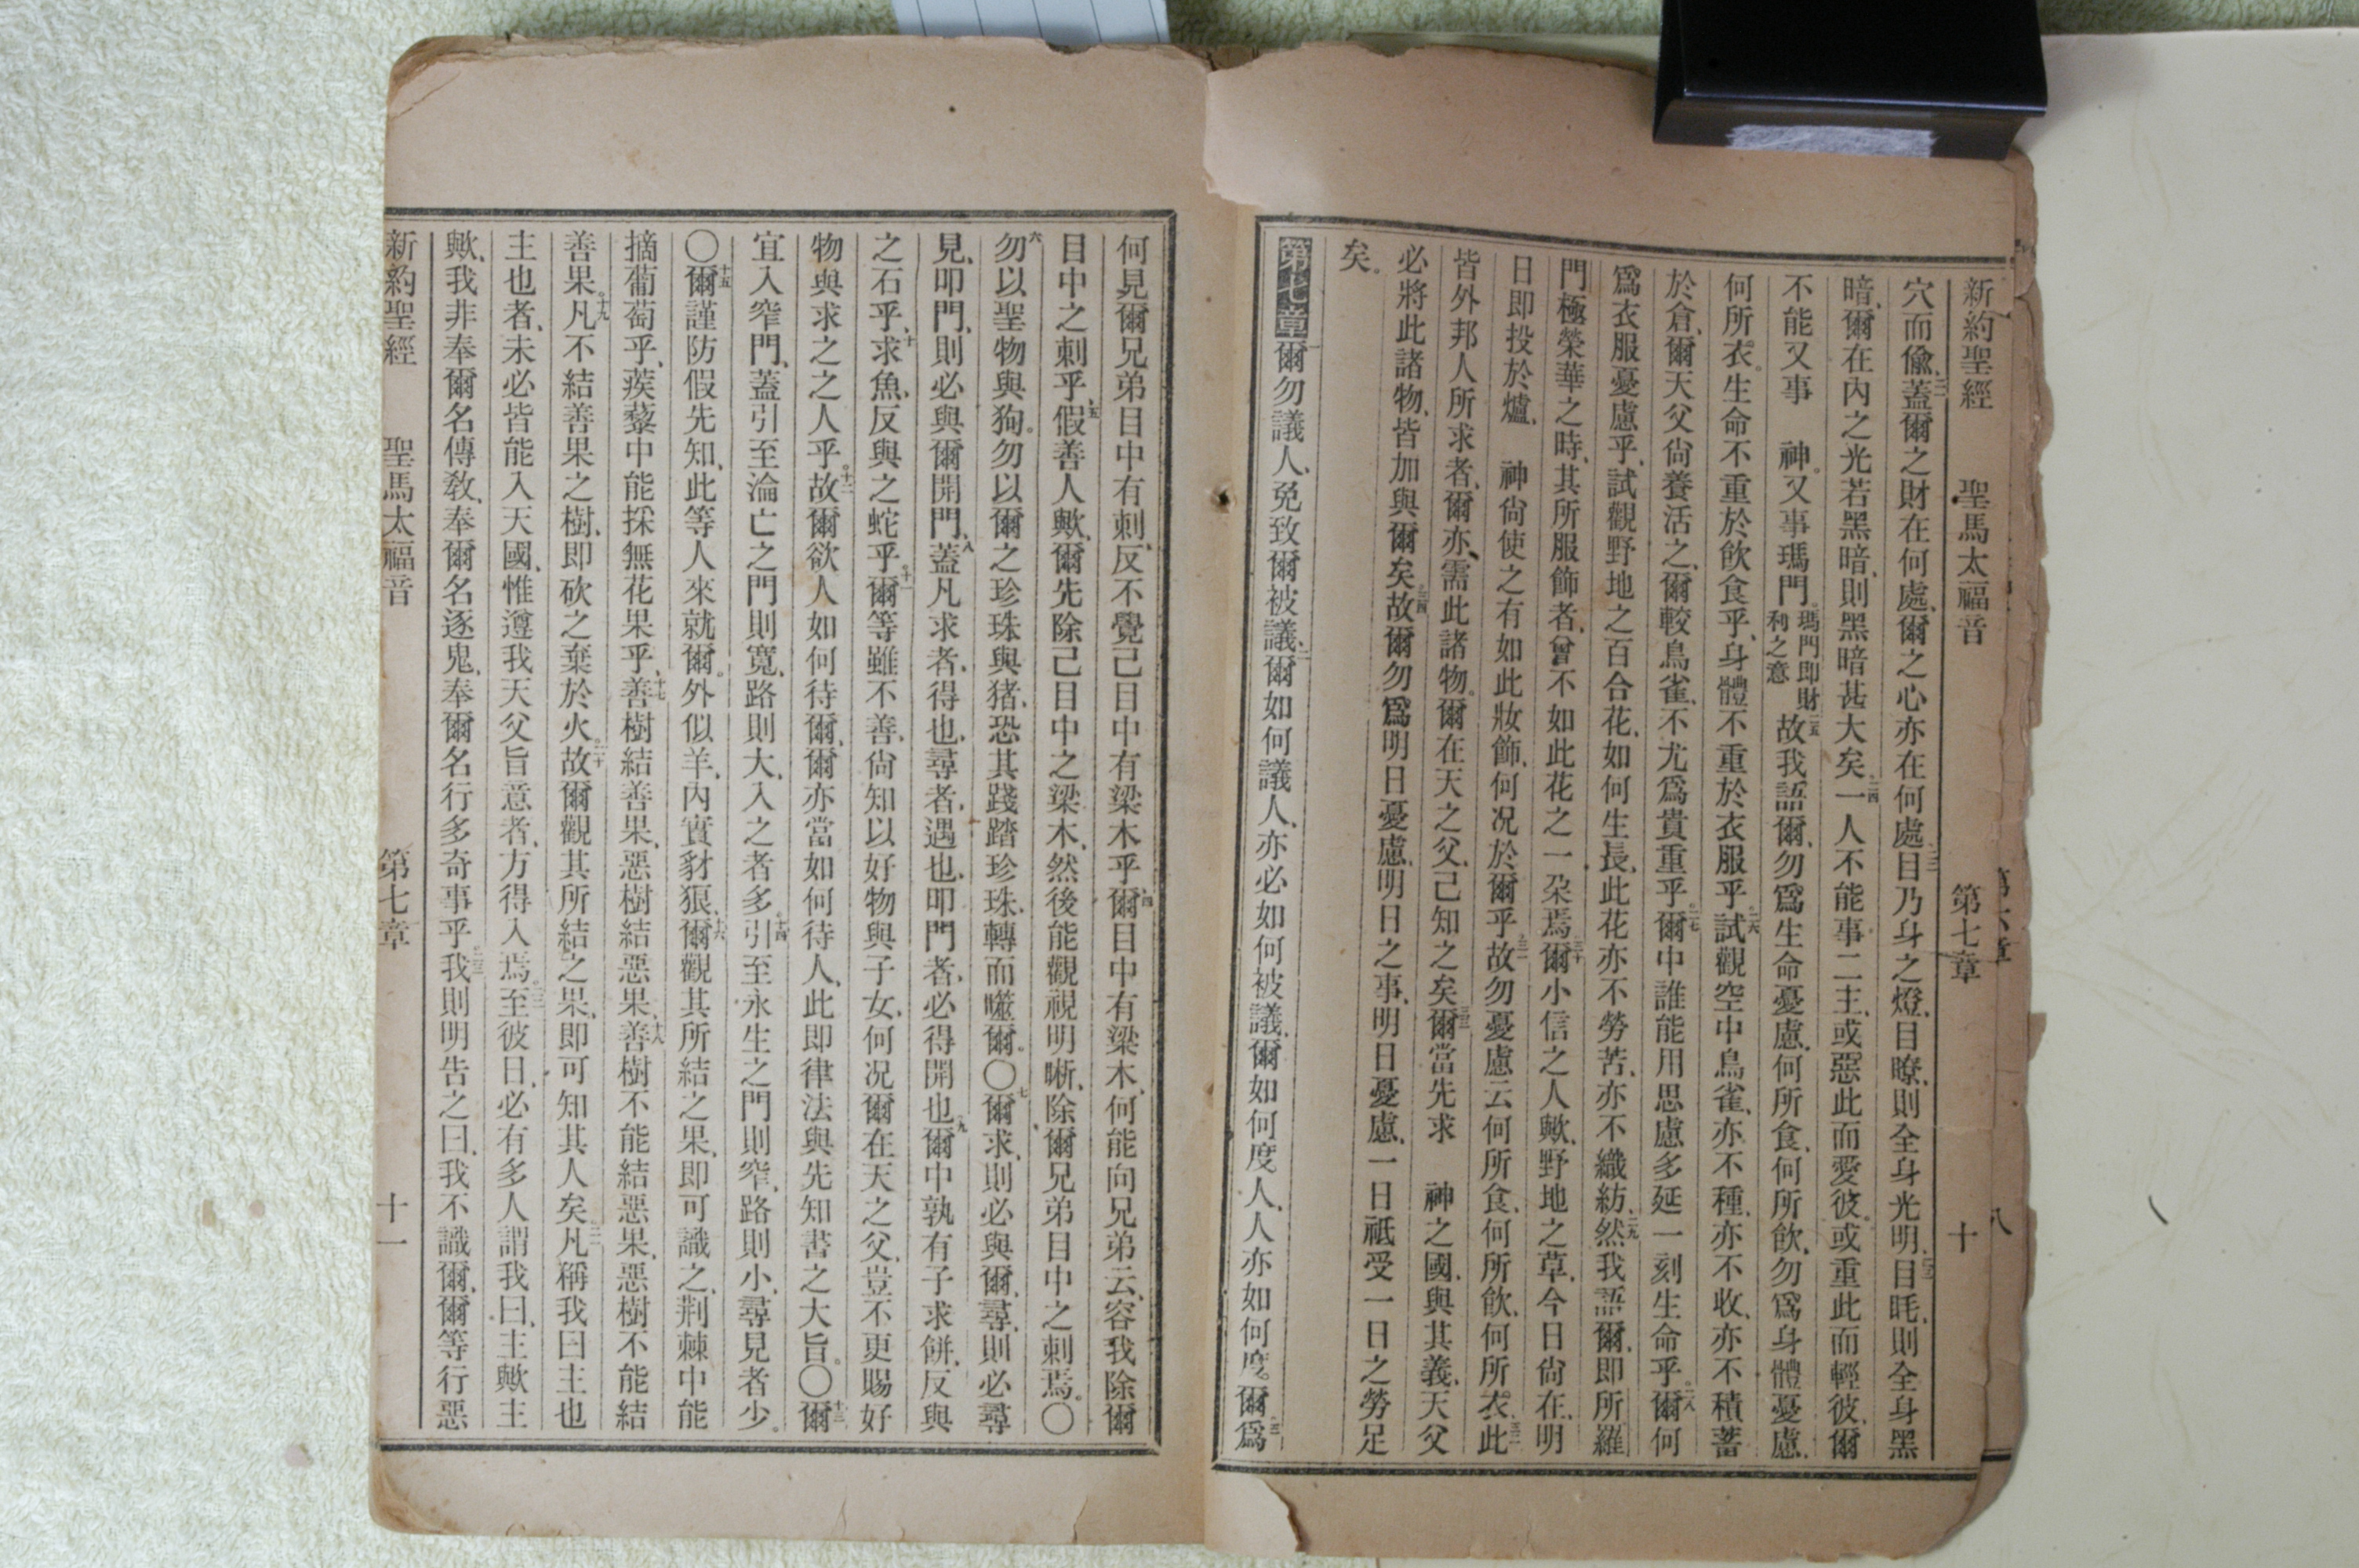 新約聖經　聖馬太福音　第七章　十
穴而偸、二一蓋爾之財在何處、爾之心亦在何處、二二目乃身之燈、目暸、則全身光明、二三目眊、則全身黑
暗、爾在內之光若黑暗、則黑暗甚大矣、二四一人不能事二主、或惡此而愛彼、或重此而輕彼、爾
不能又事　神。又事瑪門。瑪門即財利之意二五故我語爾、勿爲生命憂慮、何所食、何所飮、勿爲身體憂慮、
何所衣。生命不重於飮食乎、身體不重於衣服乎、二六試觀空中鳥雀、亦不種、亦不收、亦不積蓄
於倉、爾天父尙養活之、爾較鳥雀、不尤爲貴重乎。二七爾中誰能用思慮多延一刻生命乎。二八爾何
爲衣服憂慮乎、試觀野地之百合花、如何生長、此花亦不勞苦、亦不織紡、二九然我語爾、即所羅
門極榮華之時、其所服飾者、曾不如此花之一朶焉、三十爾小信之人歟、野地之草、今日尙在、明
日即投於爐、　神尙使之有如此妝飾、何况於爾乎、三一故勿憂慮云何所食、何所飮、何所衣、三二此
皆外邦人所求者、爾亦需此諸物。爾在天之父、已知之矣、三三爾當先求　神之國、與其義、天父
必將此諸物、皆加與爾矣。三四故爾勿爲明日憂慮、明日之事、明日憂慮、一日祗受一日之勞足
矣。
第七章一爾勿議人、免致爾被議、二爾如何議人、亦必如何被議、爾如何度人、人亦如何度。三爾爲
何見爾兄弟目中有刺、反不覺己目中有梁木乎、四爾目中有梁木、何能向兄弟云、容我除爾
目中之刺乎、五假善人歟、爾先除己目中之梁木、然後能觀視明晰、除爾兄弟目中之刺焉。〇
六勿以聖物與狗。勿以爾之珍珠與猪、恐其踐踏珍珠、轉而噬爾。〇七爾求、則必與爾、尋、則必尋
見、叩門、則必與爾開門、八蓋凡求者、得也、尋者、遇也、叩門者、必得開也、九爾中孰有子求餅、反與
之石乎、十求魚、反與之蛇乎。十一爾等雖不善、尙知以好物與子女、何况爾在天之父、豈不更賜好
物與求之之人乎。十二故爾欲人如何待爾、爾亦當如何待人、此即律法與先知書之大旨。〇十三爾
宜入窄門、蓋引至淪亡之門則寬、路則大、入之者多。十四引至永生之門則窄、路則小、尋見者少。
〇十五爾謹防假先知、此等人來就爾。外似羊、內實豺狼、十六爾觀其所結之果、即可識之、荆棘中能
摘葡萄乎、蒺藜中能採無花果乎、十七善樹結善果、惡樹結惡果、十八善樹不能結惡果、惡樹不能結
善果。十九凡不結善果之樹、即砍之棄於火。二十故爾觀其所結之果、即可知其人矣、二一凡稱我曰主也
主也者、未必皆能入天國、惟遵我天父旨意者、方得入焉。二二至彼日、必有多人謂我曰、主歟主
歟、我非奉爾名傳敎、奉爾名逐鬼、奉爾名行多奇事乎、二三我則明吿之曰、我不識爾、爾等行惡
新約聖經　聖馬太福音　第七章　十一